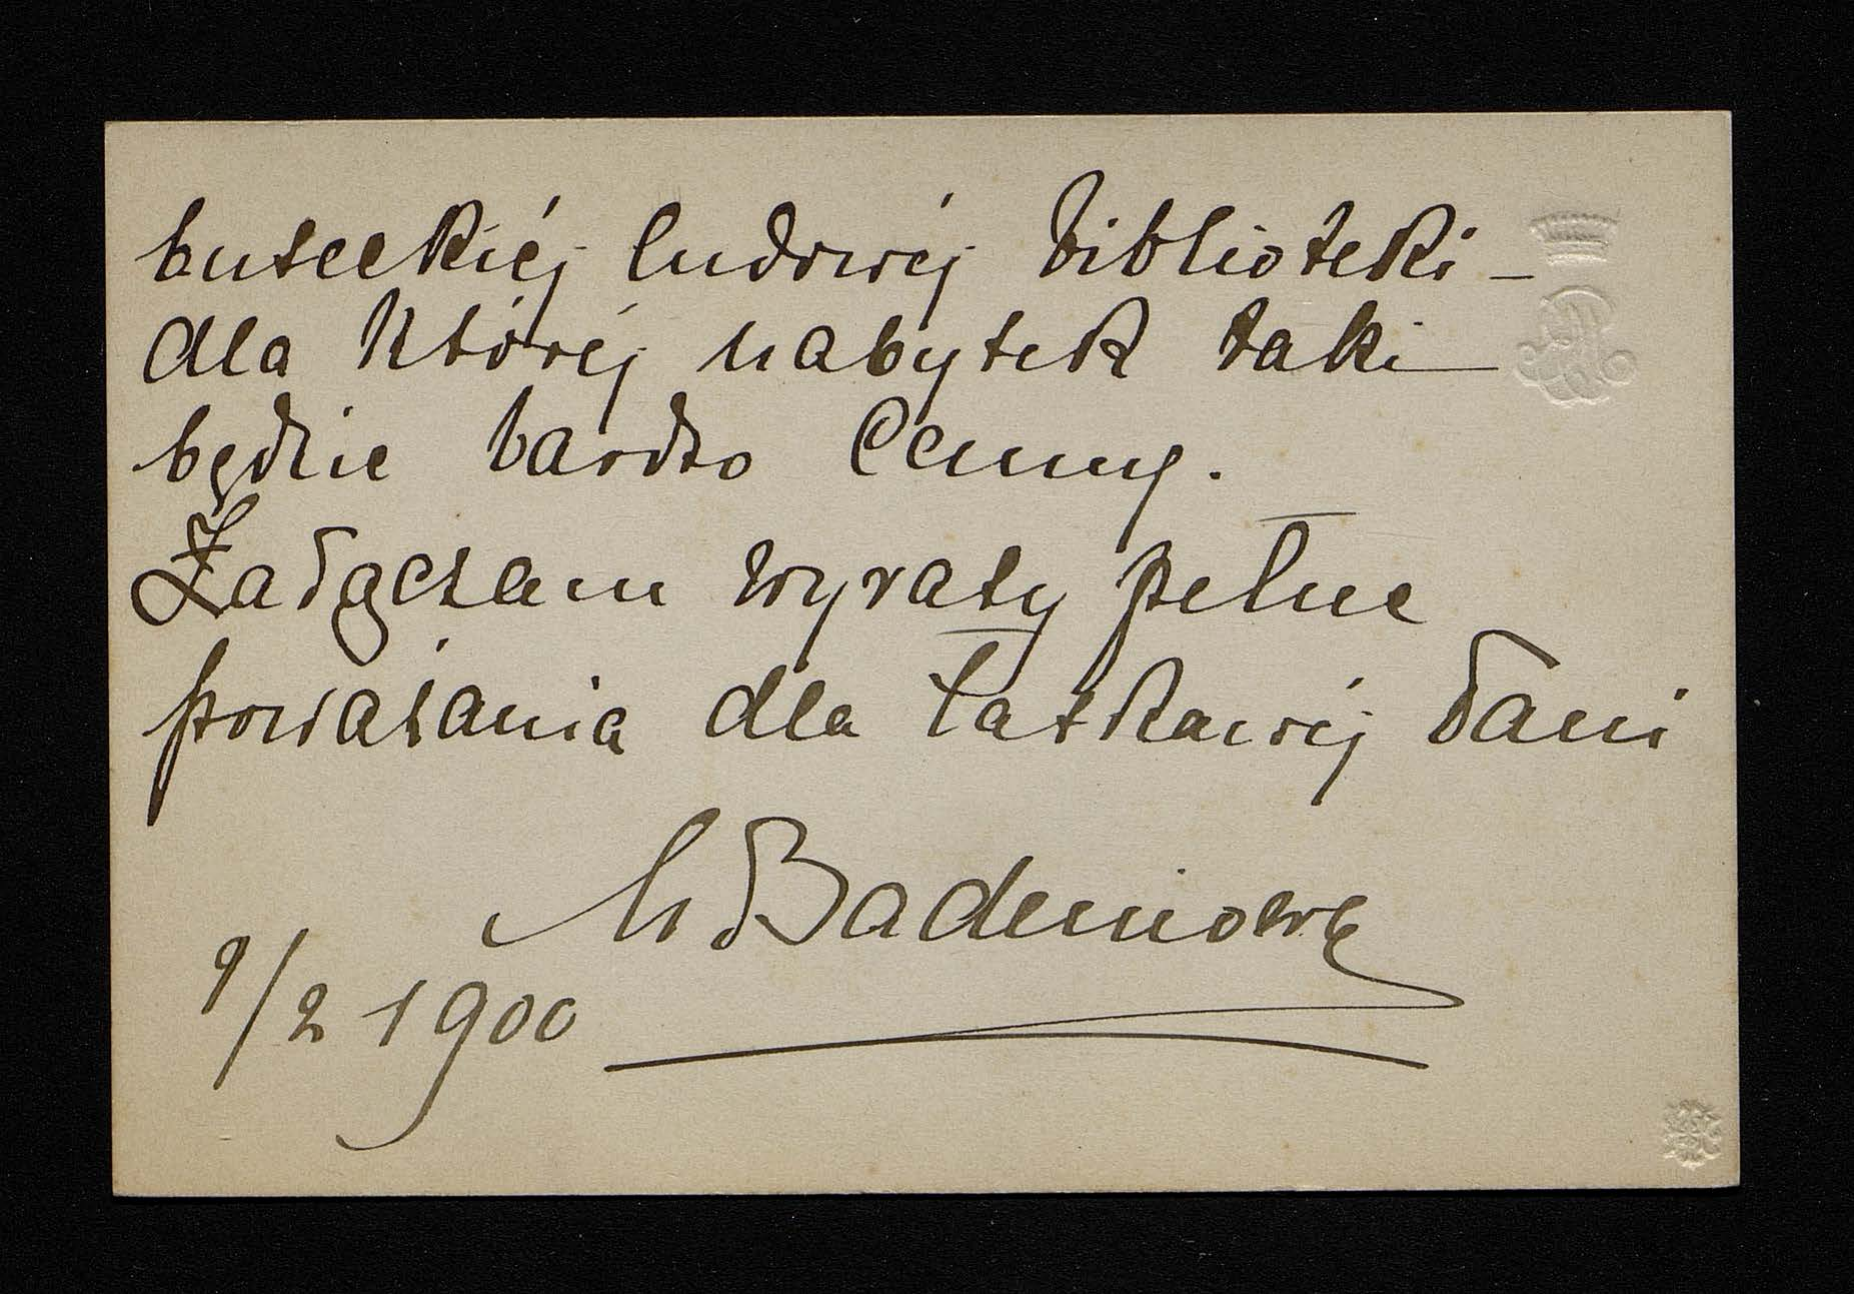 buteckiéj ludowéj biblioteki –
dla któréj nabytek taki
będzie bardzo cenny.
Załączam wyrazy pełne
poważania dla łaskawéj Pani
M Badeniowa
9/2 1900